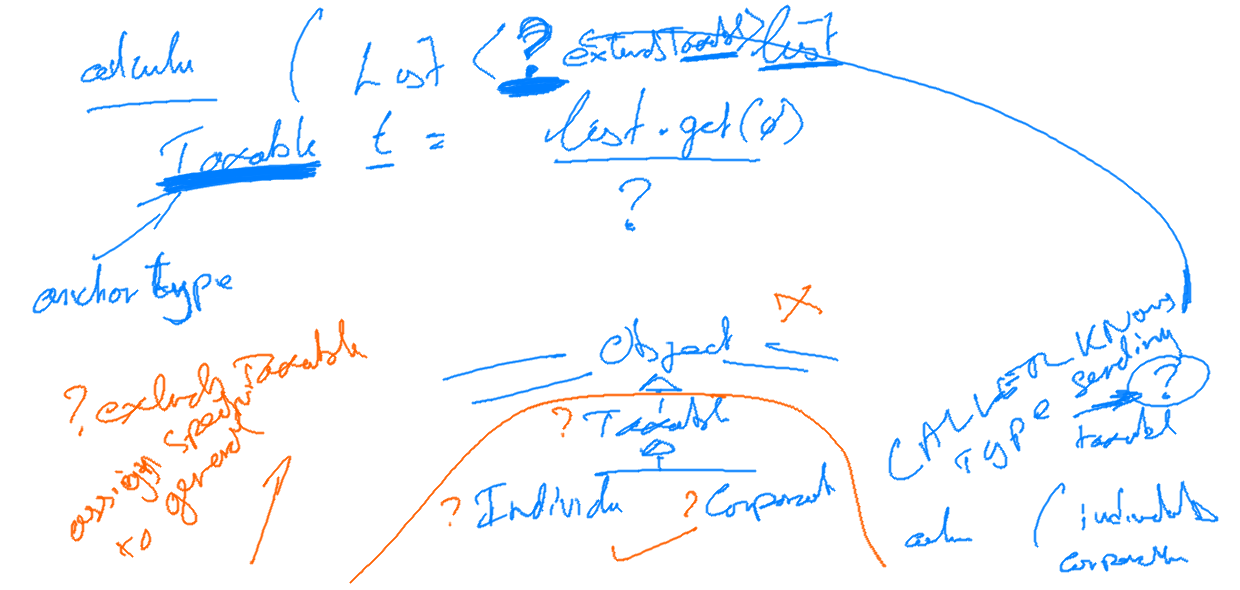 calculu ( List < ? extends Taxable> list
Taxable t = list.get(0)
?
anchor type
Object
? extends Taxable
assign specific
to general
? Taxable
? Individu ? Corporat
CALLER KNOWS
TYPE sending
?
taxabl
calu ( individuals
corporatn